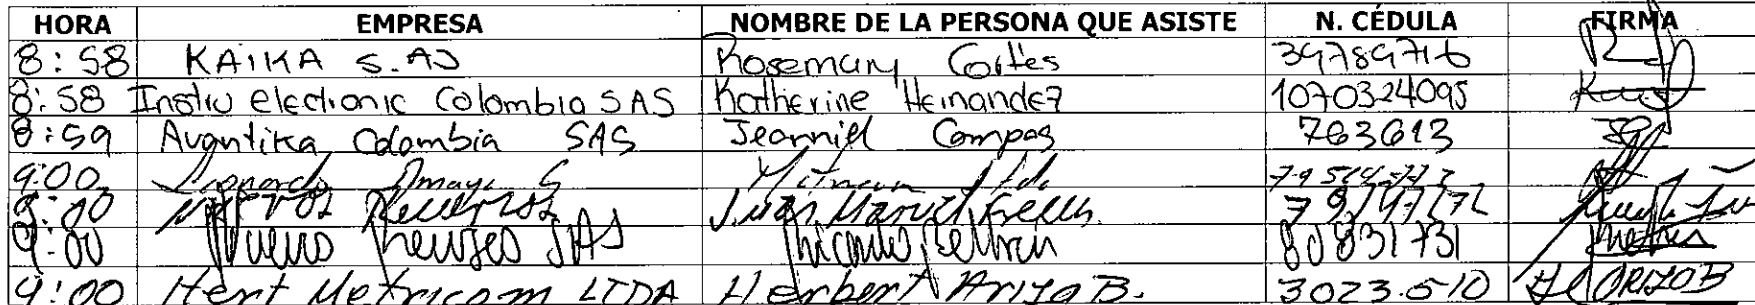 HORA EMPRESA NOMBRE DE LA PERSONA QUE ASISTE N. CÉDULA FIRMA
8:58 KAIKA S.AS Rosemary Cortés 39789716
8:58 Instru electronic Colombia SAS Katherine Hernandez 1070324095
8:59 Avantika Colombia SAS Jeanniel Campos 763613
9:00 Leonardo Amaya G Ltda
9:00 Juan Manuel
9:00 Nuevos Recursos SAS Ricardo Beltrán 80831731
9:00 Hert Metricom LTDA Herbert Ariza B. 3023.510 H ARIZA B